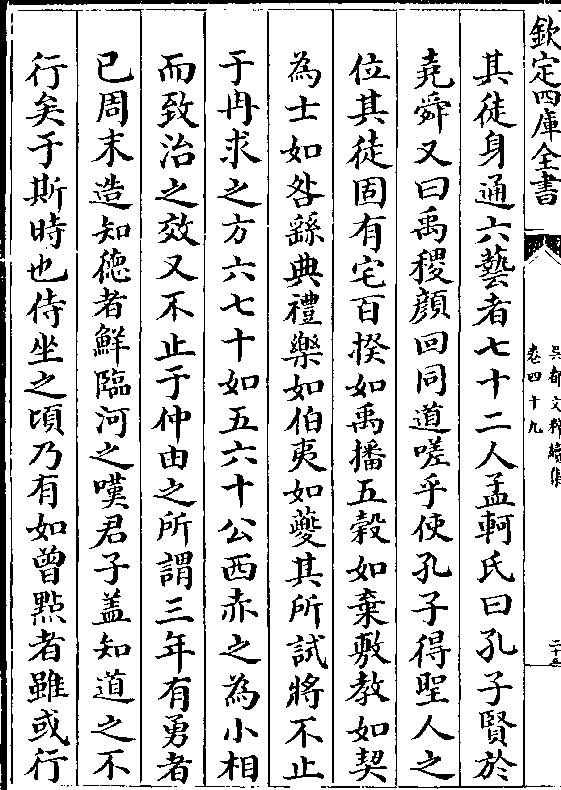 欽定四庫全書
吳都文粹續集
卷四十九
二十五
其徒身通六藝者七十二人孟軻氏曰孔子賢於
堯舜又曰禹稷顔回同道嗟乎使孔子得聖人之
位其徒固有宅百揆如禹播五榖如棄敷教如契
為士如咎繇典禮樂如伯夷如夔其所試將不止
于冉求之方六七十如五六十公西赤之為小相
而致治之效又不止于仲由之所謂三年有勇者
已周末造知徳者鮮臨河之嘆君子盖知道之不
行矣于斯時也侍坐之頃乃有如曾㸃者雖或行